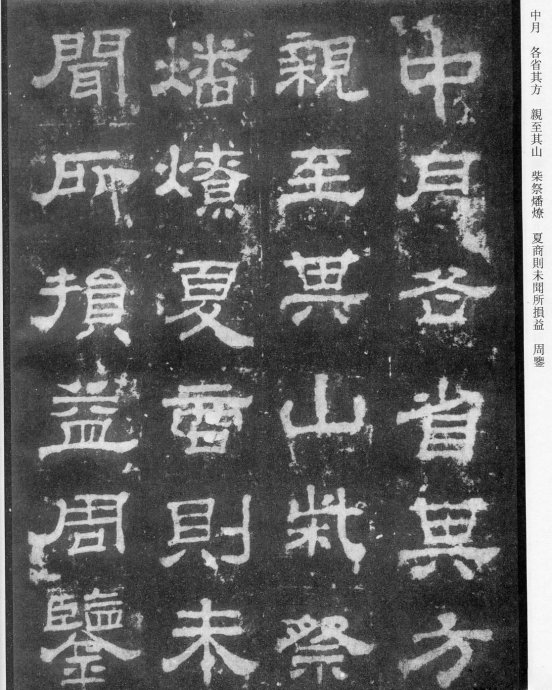 中月各省其方
親至其山柴祭
燔燎夏商則未
聞所損益周鑒
中月　各省其方　親至其山　柴祭燔燎　夏商則未聞所損益　周鑒